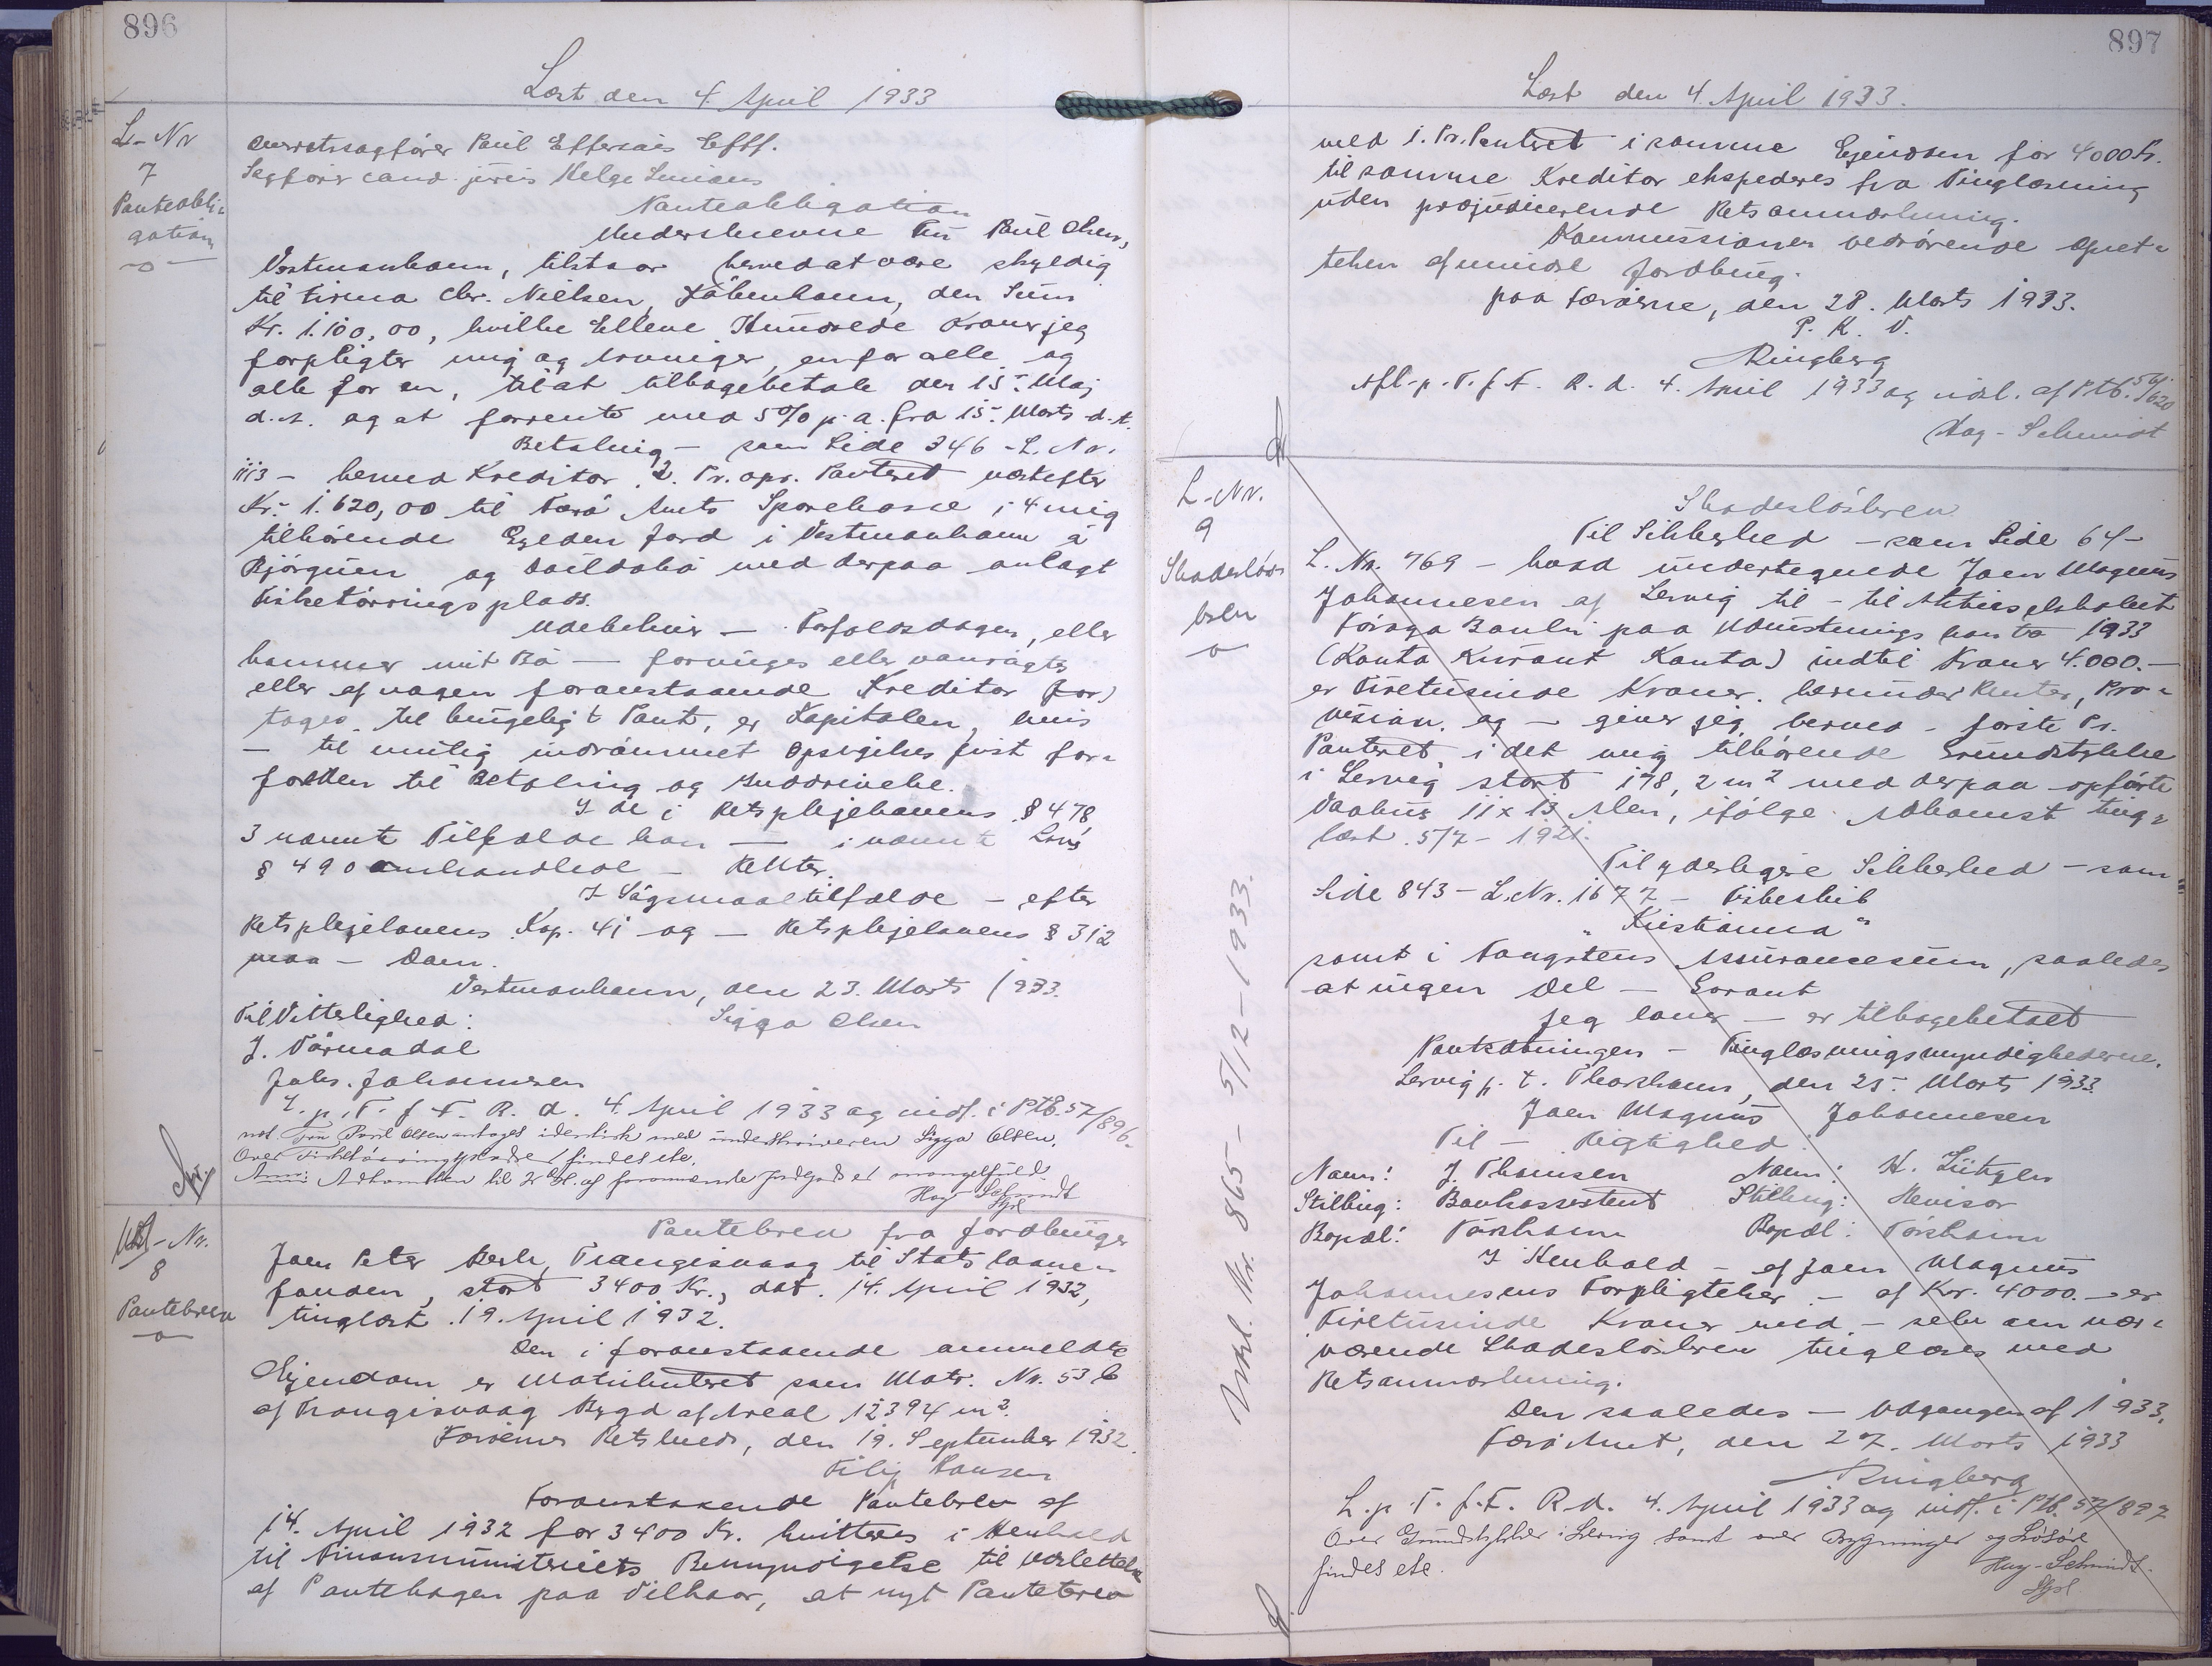 896
Læst den 4. April 1933
L-Nr
7
Panteobli-
gation
Overretssagfører Paul Effersøes Eftf.
Sagfører cand. juris Helge
Panteobligation
Underskrevne Fru Paul Olsen,
Vestmanhavn, tilstaar herved at være skyldig
til Firma Chr. Nielsen, København, den Sum
Kr. 1.100,00, hvilke Elleve Hundrede Kroner jeg
forpligter mig og Arvinger, en for alle og
alle for en, til at tilbagebetale den 15. Maj
d.A. og at forrente med 5% p.a. fra 15. Marts d.A.
Betaling - som Side 346 - L. Nr.
1113 - herved Kreditor 2. Pr. opr. Panteret næstefter
Kr. 1.620,00 til Færø Amts Sparekasse i 4 mig
tilhørende Jord i Vestmanhavn á
Bjørgum og med derpaa anlagt
Fisketørringsplads.
Udebliver - Forfaldsdagen, eller
kommer mit Bo - forringes eller vanrøgtes
eller af nogen foranstaaende Kreditor for-
tages til brugeligt Pant, er Kapitalen, hvis
- til mulig indrømmet Opsigelses frist for-
falden til Betaling og Inddrivelse.
I de i Retsplejelovens § 478
3 nævnte Tilfælde kan - i nævnte Lovs
§ 490 omhandlede - Retter.
I Søgsmaalstilfælde - efter
Retsplejelovens Kap. 41 og - Retsplejelovens § 312
maa - Dom.
Vestmanhavn, den 23. Marts 1933.
Til Vitterlighed: Sigga Olsen
J. Tørmadal
Johs. Johannesen
L. p. T. f. F. R. d. 4. April 1933 og indf. i Ptb. 57/896.
not. Fru Poul Olsen antages identisk med underskriveren Sigga Olsen.
Over findes ete.
Anm: Adkomsten til af foranævnte Jordgods er mangelfuld.
Hag-Schmidt
L-Nr.
8
Pantebrev
Pantebrev fra Jordbruger
Joen Peter Trangisvaag til Statslaane-
fonden, stort 3400 Kr., dat. 14. April 1932,
tinglæst 19. April 1932.
Den i foranstaaende anmeldte
Ejendom er Matrikuleret som Matr. Nr. 53 b
af Trangisvaag Bygd af Areal 12394 m².
Færøernes Retskreds, den 19. September 1932.
Filip Hansen
Foranstaaende Pantebrev af
14. April 1932 for 3400 Kr. kvitteres i Henhold
til Finansministeriets Bemyndigelse til Udslettelse
af Pantebogen paa Vilkaar, at nyt Pantebrev
897
Læst den 4. April 1933.
med 1. Pr. Panteret i samme Ejendom for 4000 Kr.
til samme Kreditor ekspederes fra Tinglæsning
uden præjudicerende Retsanmærkning.
Kommissionen vedrørende Opret-
telsen af mindre Jordbrug.
paa Færøerne, den 28. Marts 1933.
P. K. V.
Ringberg
Afl. p. T. f. F. R. d. 4. April 1933 og udsl. af Ptb. 56/620
Hag-Schmidt
L-Nr.
9
Skadesløs-
brev
Udsl. Nr. 865 - 5/12-1933.
Skadesløsbrev
Til Sikkerhed - som Side 64 -
L. Nr. 769 - hvad undertegnede Joen Magnus
Johannesen af Lervig til - til Aktieselskabet
Føroya Banki paa Udrustnings konto 1933
(Konto Kurant Konto) indtil Kroner 4.000.-
er Firetusinde Kroner, herunder Renter, Pro-
vision, og - giver jeg herved - første Pr.
Panteret i det mig tilhørende Grundstykke
i Lervig stort 178,2 m² med derpaa opførte
Vaahus 11 x 13 Alen, ifølge Adkomst ting-
læst 5/7-1921.
Til yderligere Sikkerhed - som
Side 843 - L. Nr. 1677 - Fiskeskib
"Kristianna"
samt i Fangstens Assurancesum, saaledes
at ingen Del - Garant
Jeg lover - er tilbagebetalt
Pantsætningen - Tinglæsningsmyndighederne.
Lervig p. t. Thorshavn, den 25. Marts 1933.
Joen Magnus Johannesen
Til - Rigtighed
Navn: J. Thomsen Navn: H. Lützen
Stilling: Bankassistent Stilling: Revisor
Bopæl: Tórshavn Bopæl: Tórshavn
I Henhold - af Joen Magnus
Johannesens Forpligtelser - af Kr. 4000.- er
Firetusinde Kroner med - selv om nær-
værende Skadesløsbrev tinglæses med
Retsanmærkning.
Den saaledes - Udgangen af 1933.
Færø Amt, den 27. Marts 1933
Ringberg
L. p. T. f. F. R. d. 4. April 1933 og indf. i Ptb. 57/897
Over Grundstykker i Lervig samt over Bygninger og Løsøre
findes ete.
Hag-Schmidt.